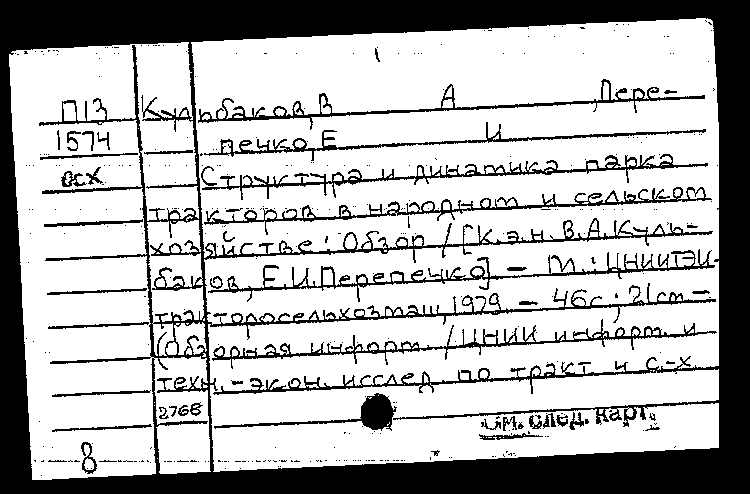 П13 Кульбаков, В А , Пере-
1574 печко, Е И
осх Структура и динатика парка
тракторов в народнот и сельскот
хозяйстве : Обзор / [К.э.н. В.А. Куль-
баков, Е.И. Перепечко] - М. : ЦНИИТЭИ-
тракторосельхозмаш, 1979. - 46с ; 21ст -
(Обзорная информ. / ЦНИИ информ. и
техн. - экон. исслед по тракт и с.-х.
2766 См. след. карт.
8